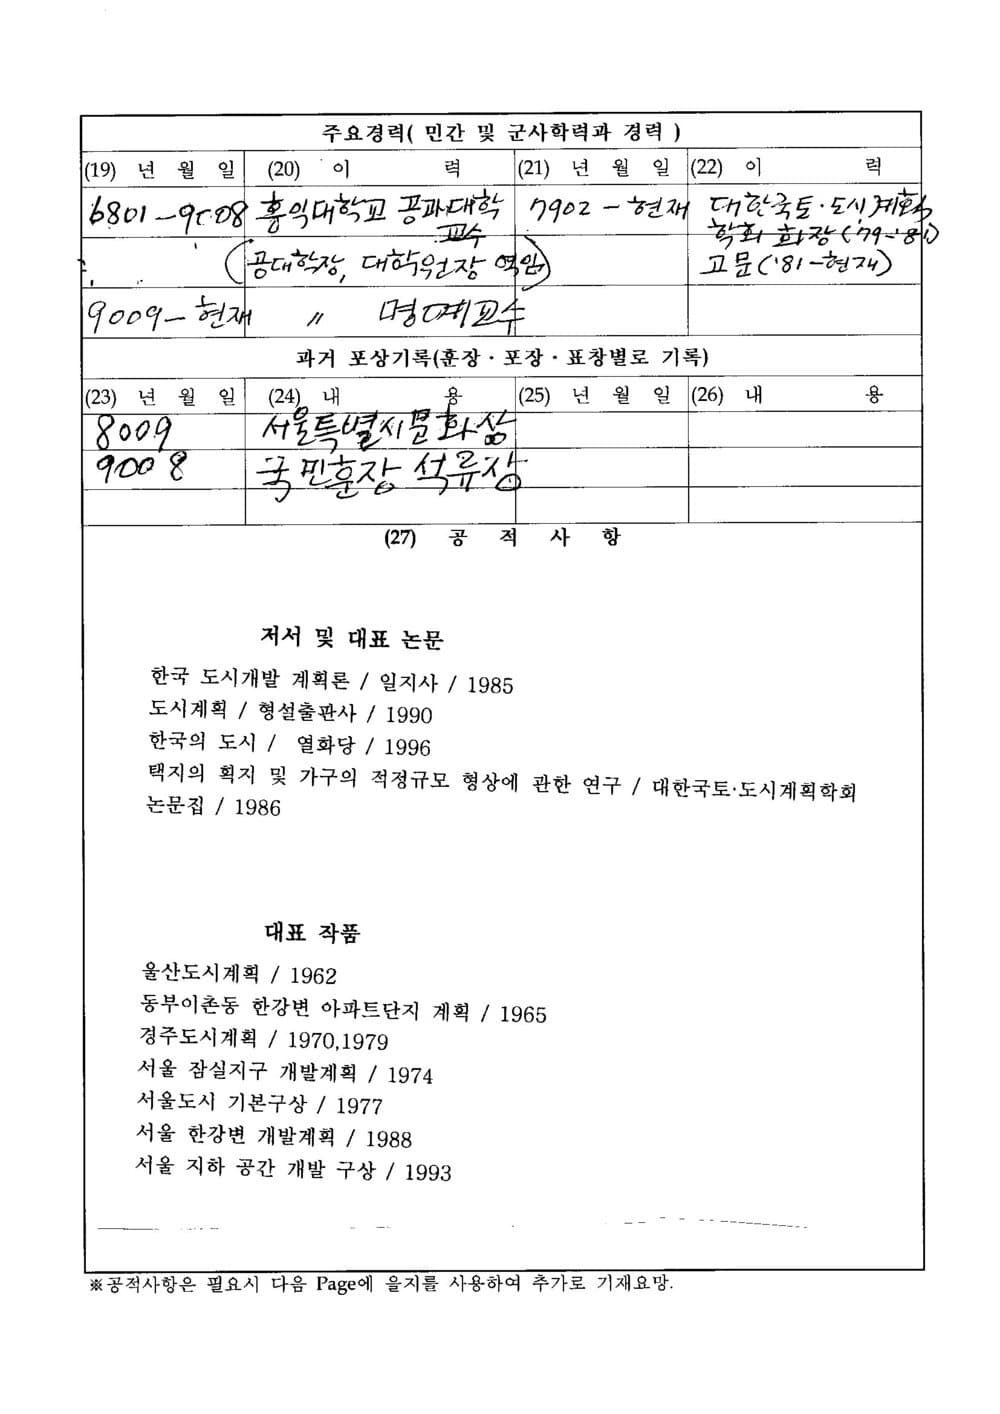 주요경력( 민간 및 군사학력과 경력 )
(19) 년 월 일 (20) 이 력 (21) 년 월 일 (22) 이 력
6801-9008 홍익대학교 공과대학 7902 - 현재 대한국토·도시계획
교수 학회 회장('79-'81)
(공대학장, 대학원장 역임) 고문('81-현재)
9009- 현재 〃 명예교수
과거 포상기록(훈장 · 포장 · 표창별로 기록)
(23) 년 월 일 (24) 내 용 (25) 년 월 일 (26) 내 용
8009 서울특별시문화상
9008 국민훈장 석류장
(27) 공 적 사 항
저서 및 대표 논문
한국 도시개발 계획론 / 일지사 / 1985
도시계획 / 형설출판사 / 1990
한국의 도시 / 열화당 / 1996
택지의 획지 및 가구의 적정규모 형상에 관한 연구 / 대한국토·도시계획학회
논문집 / 1986
대표 작품
울산도시계획 / 1962
동부이촌동 한강변 아파트단지 계획 / 1965
경주도시계획 / 1970,1979
서울 잠실지구 개발계획 / 1974
서울도시 기본구상 / 1977
서울 한강변 개발계획 / 1988
서울 지하 공간 개발 구상 / 1993
※공적사항은 필요시 다음 Page에 을지를 사용하여 추가로 기재요망.